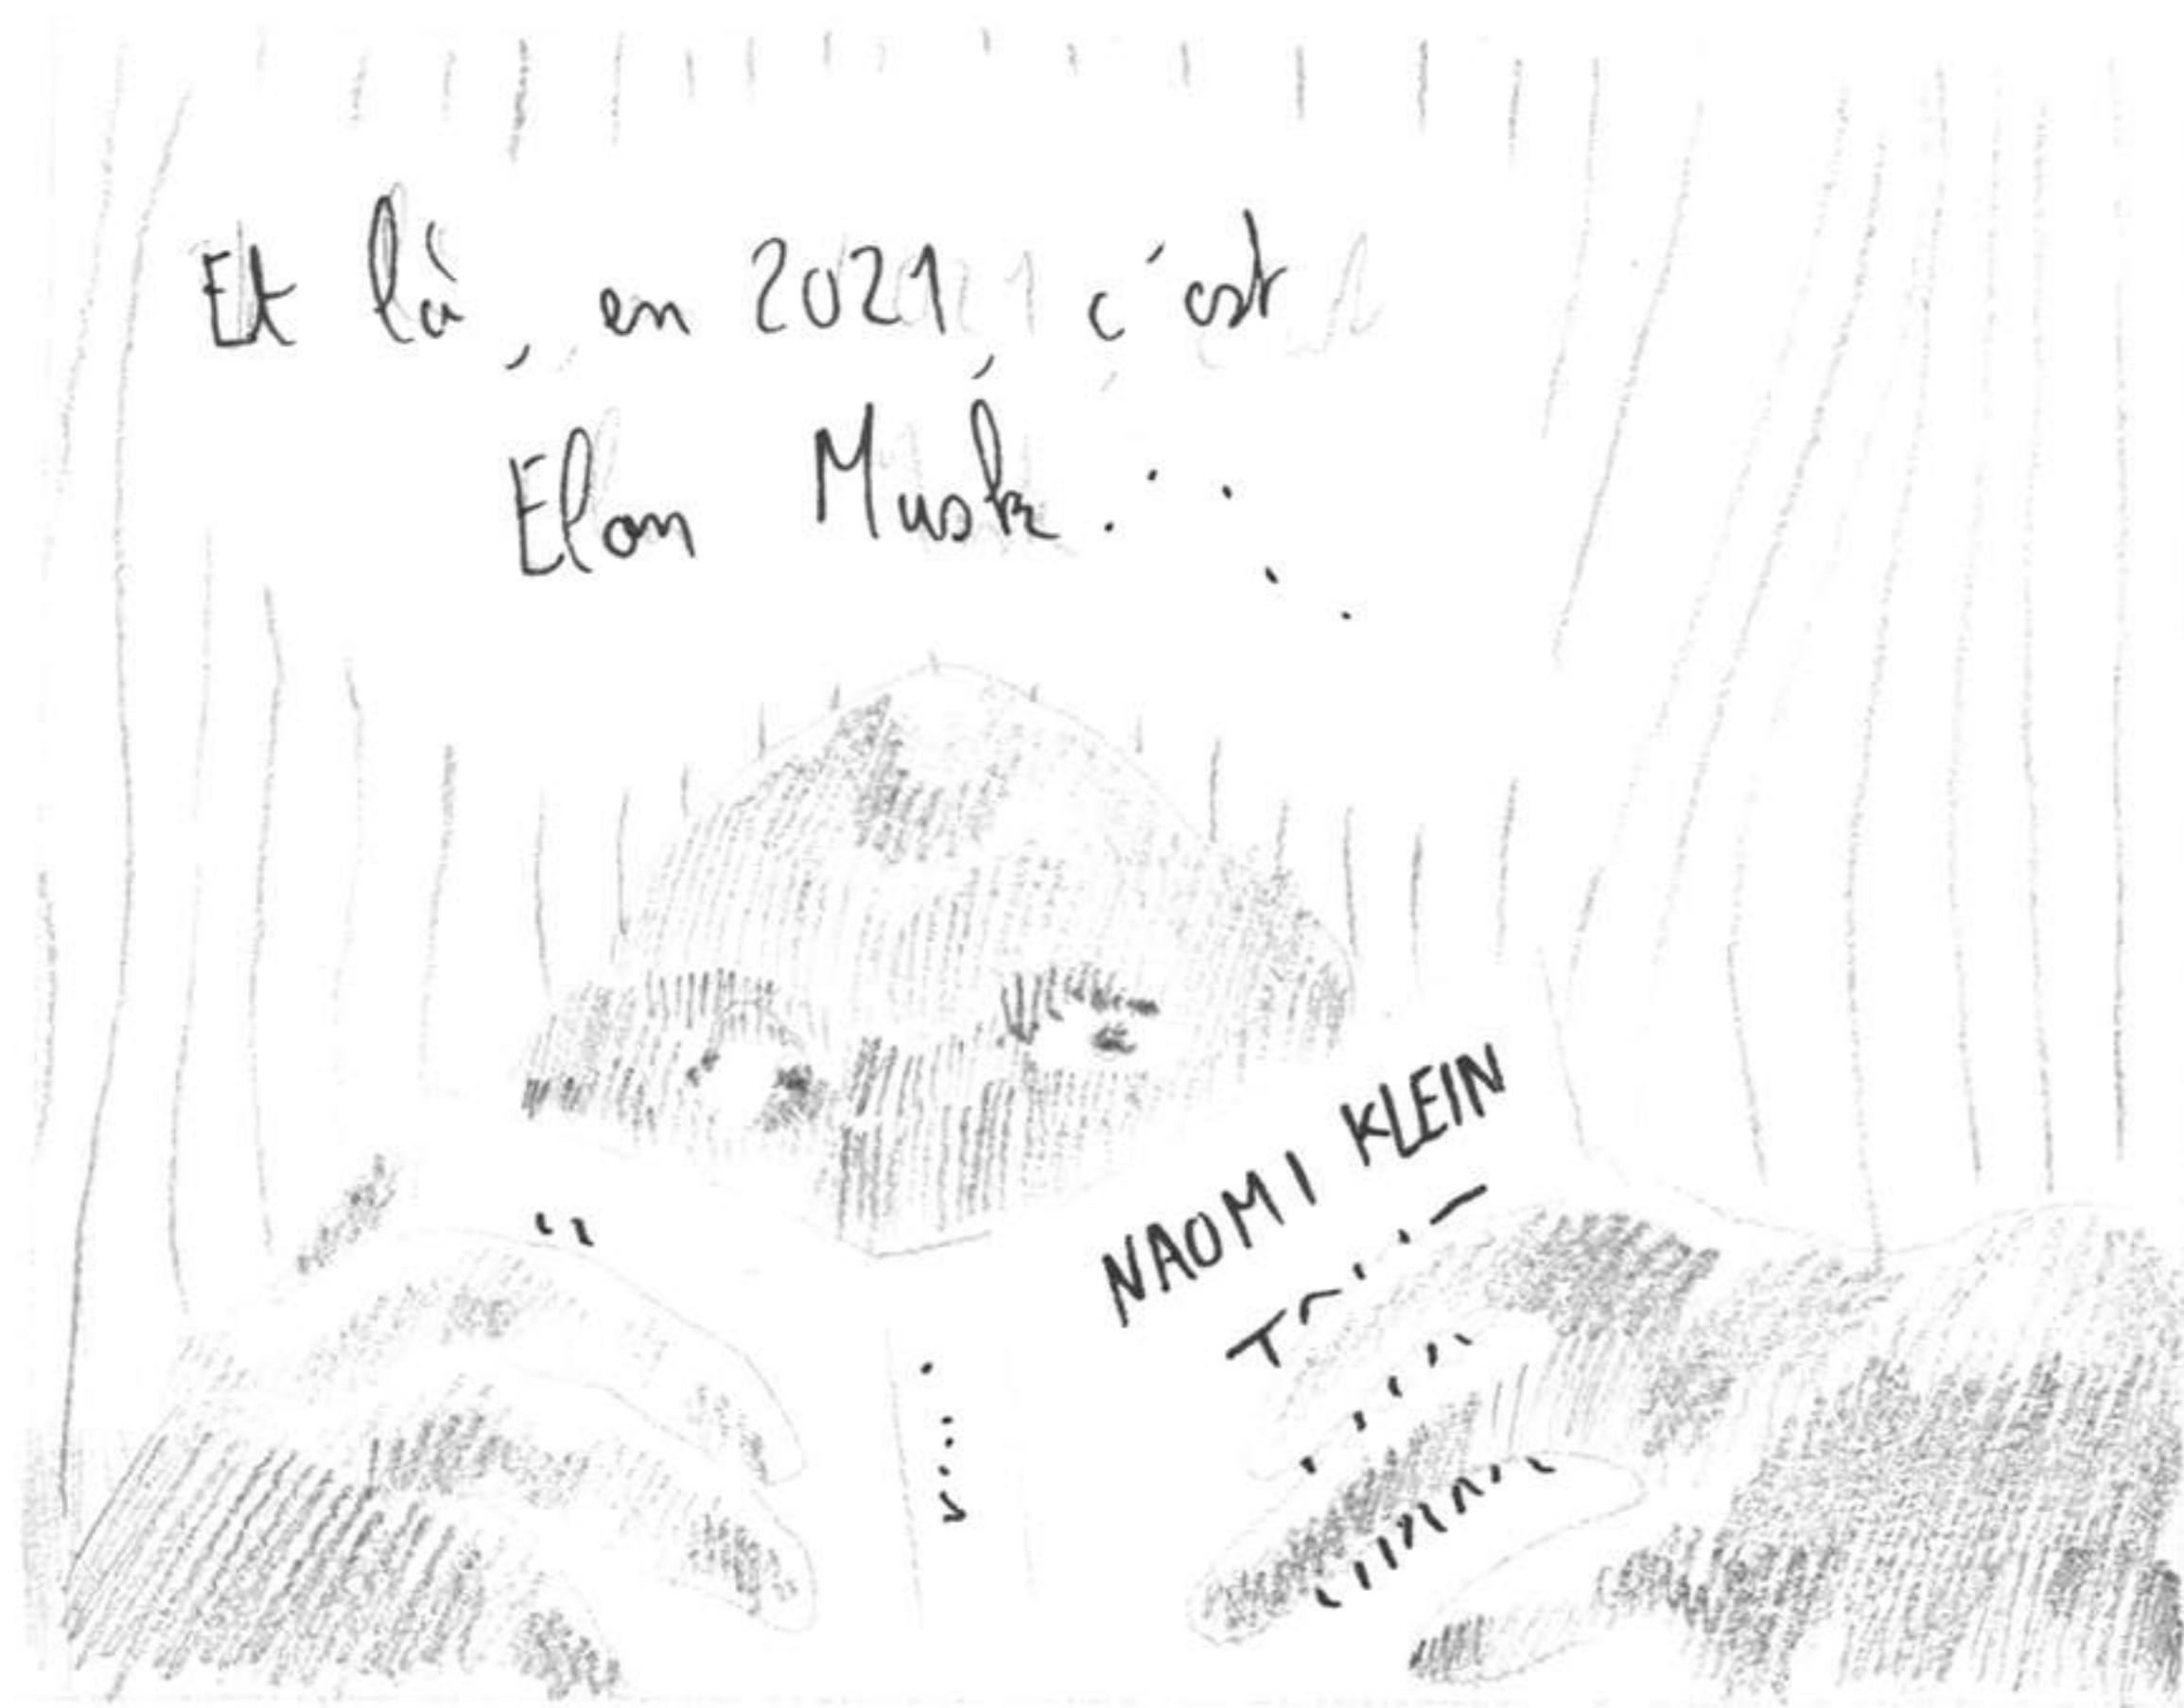 Et là, en 2021, c'est
Elon Musk...
NAOMI KLEIN